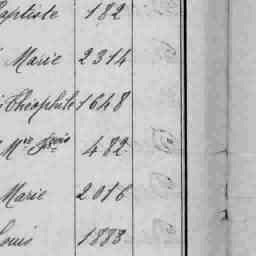 aptiste 182
Marie 2314
Théophile 1648
482
Marie 2016
Louis 1883